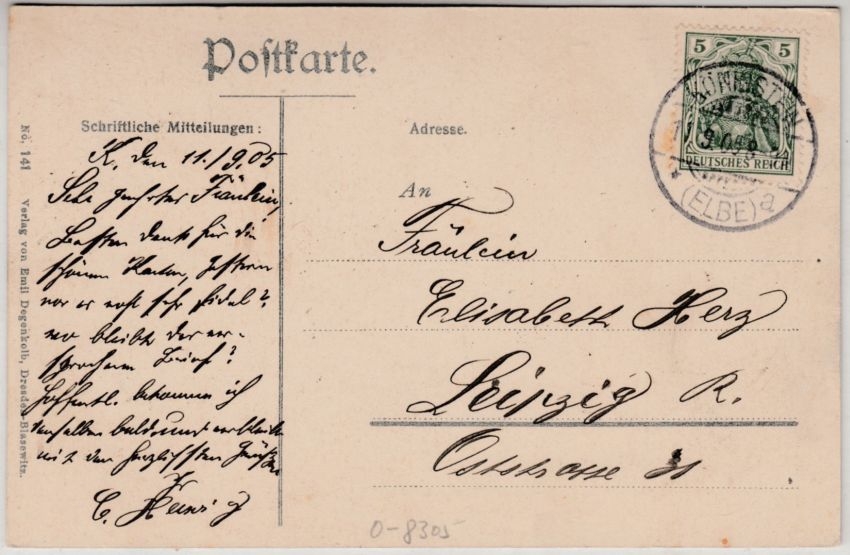 Postkarte.
Schriftliche Mitteilungen:
K. den 11./9.05
Sehr geehrtes Fräulein,
Besten Dank für die
schönen Karten, gestern
war es wohl sehr fidel?
wo bleibt der ver-
sprochene Brief?
Hoffentl. bekomme ich
denselben bald und verbleibe
mit den herzlichsten Grüßen
Adresse.
An
Fräulein
Elisabeth Herz
Leipzig R.
Oststrasse
5 5
DEUTSCHES REICH
KÖNIGSTEIN
(ELBE) a
No. 141 Verlag von Emil Degenkolb, Dresden-Blasewitz.
0-8305